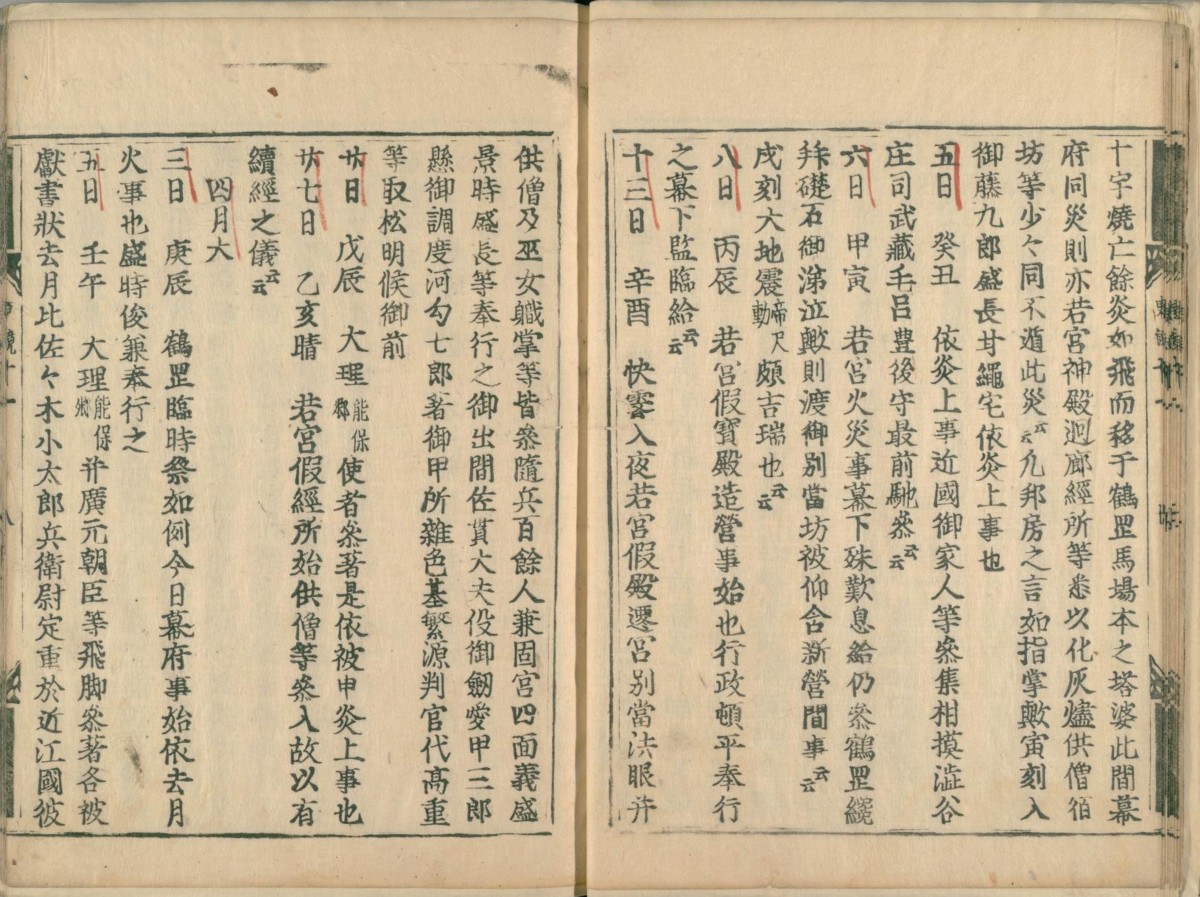 十字燒亡餘炎如飛而移于鶴罡馬場本之塔婆此間幕
府同災則亦若宮神殿廻廊經所等悉以化灰燼供僧宿
坊等少々同不遁此災云云凡邦房之言如指掌歟寅刻入
御藤九郎盛長甘繩宅依炎上事也
五日 癸丑 依炎上事近國御家人等參集相摸澁谷
庄司武藏毛呂豊後守最前馳參云云
六日 甲寅 若宮火災事幕下殊歎息給仍參鶴罡纔
拜礎石御涕泣歟則渡御別當坊被仰合新營間事云云
戌刻大地震動帝尺頗吉瑞也云云
八日 丙辰 若宮假寶殿造營事始也行政頓平奉行
之幕下監臨給云云
十三日 辛酉 快霽入夜若宮假殿遷宮别當法眼并
供僧及巫女軄掌等皆參隨兵百餘人兼固宮四面義盛
景時盛長等奉行之御出間佐貫大夫役御劔愛甲三郎
懸御調度河勾七郎著御甲所雜色基繁源判官代髙重
等取松明候御前
廿日 戊辰 大理能保卿使者參著是依被申炎上事也
廿七日 乙亥晴 若宮假經所始供僧等參入故以有
續經之儀云云
四月大
三日 庚辰 鶴罡臨時祭如例今日幕府事始依去月
火事也盛時俊兼奉行之
五日 壬午 大理能保卿并廣元朝臣等飛脚參著各被
獻書狀去月比佐々木小太郎兵衛尉定重於近江國彼